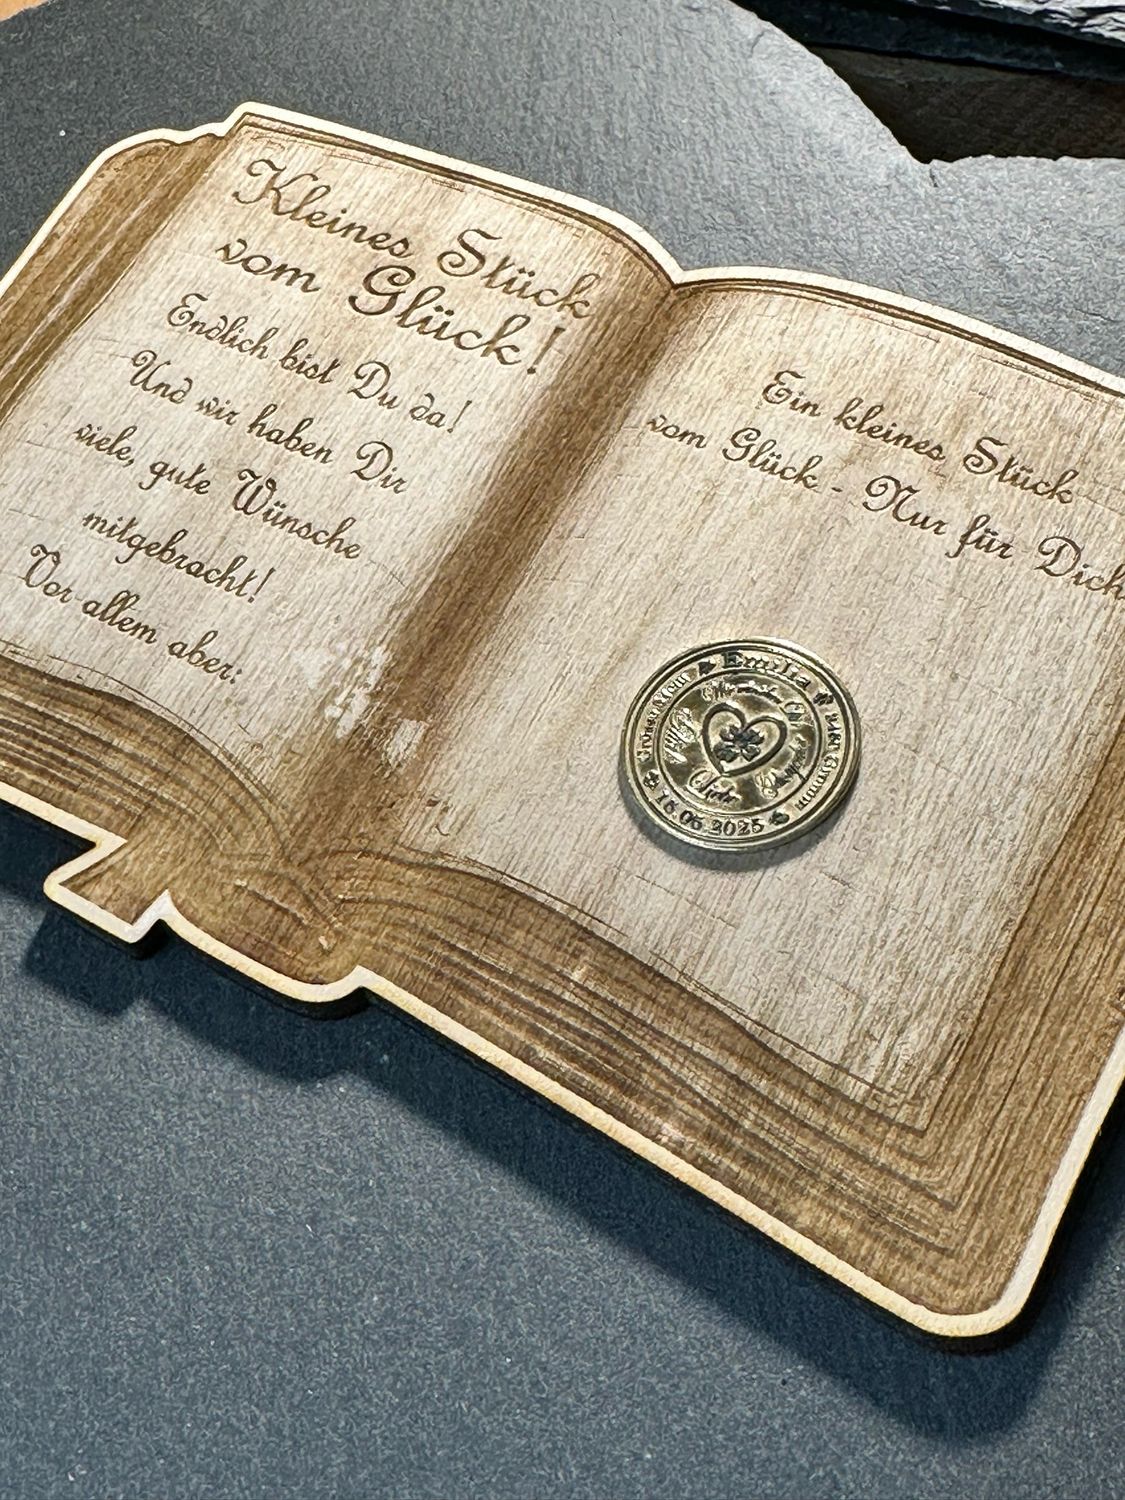 Kleines Stück
vom Glück!
Endlich bist Du da!
Und wir haben Dir
viele, gute Wünsche
mitgebracht!
Vor allem aber:
Ein kleines Stück
vom Glück - Nur für Dich
Emilia
16.06.2025